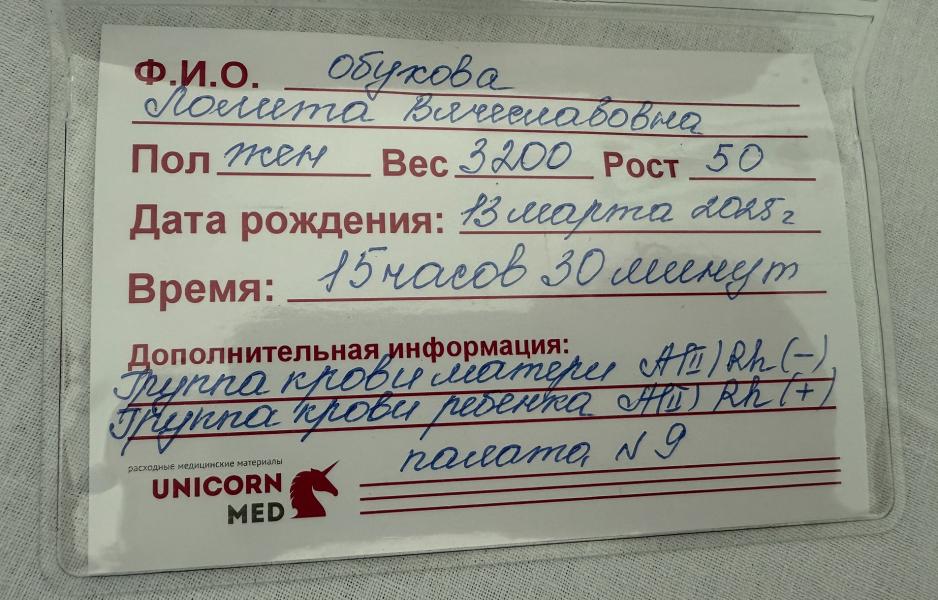 Ф.И.О. Обухова
Лолита Вячеславовна
Пол жен Вес 3200 Рост 50
Дата рождения: 13 марта 2025 г
Время: 15 часов 30 минут
Дополнительная информация:
Группа крови матери A(II) Rh (-)
Группа крови ребенка A(II) Rh (+)
палата N 9
расходные медицинские материалы
UNICORN
MED